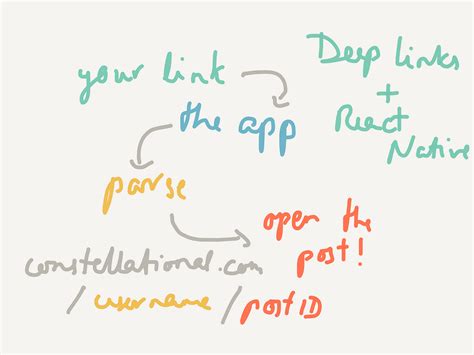 your link
the app
parse
open the
post!
constellational.com
/username/postID
Deep Links
+
React
Native